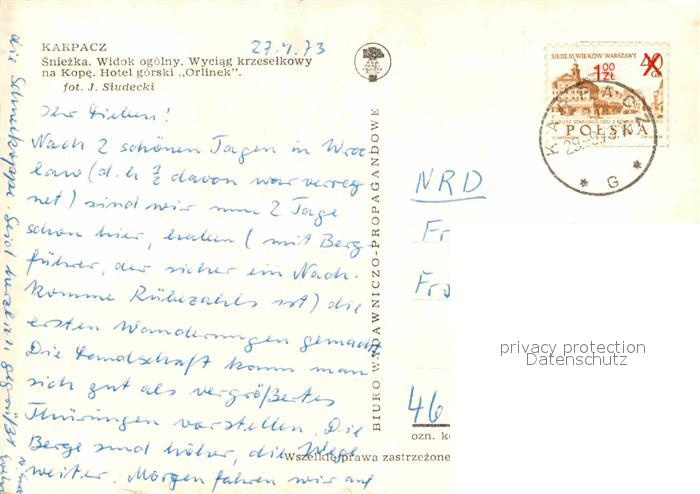 KARPACZ
27.9.73
Śnieżka. Widok ogólny. Wyciąg krzesełkowy
na Kopę. Hotel górski „Orlinek".
fot. J. Siudecki
Ihr Lieben!
Nach 2 schönen Tagen in Wroc
ław (d.h. ½ davon war verreg
net) sind wir nun 2 Tage
schon hier, haben (mit Berg
führer, der sicher ein Nach-
komme Rübezahls ist) die
ersten Wanderungen gemacht
Die Landschaft kann man
sich gut als vergrößertes
Thüringen vorstellen. Die
Berge sind höher, die Wege
weiter. Morgen fahren wir auf
die Schneekoppe. Seid herzlich gegrüßt
BIURO WYDAWNICZO-PROPAGANDOWE
SIEDEM WIEKÓW WARSZAWY
1,00 ZŁ
40 GR
POLSKA
KARPACZ
G
NRD
Fr
46
ozn. k
Wszelkie prawa zastrzeżone
privacy protection
Datenschutz